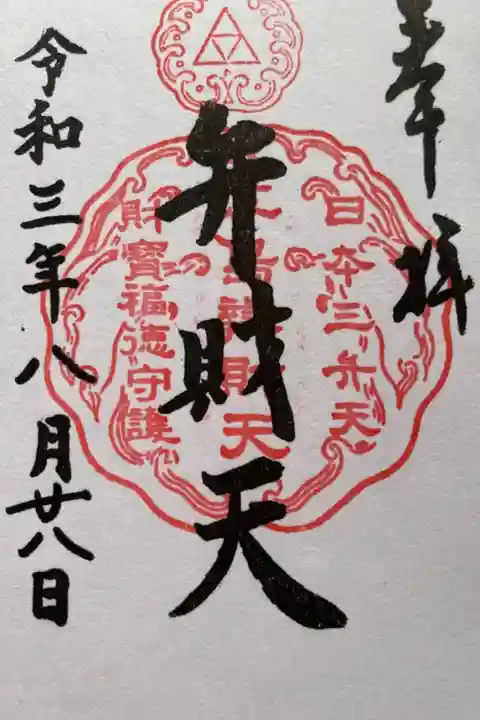 奉拝
日本三弁天
弁財天
財寶福徳守護
令和三年八月廿八日